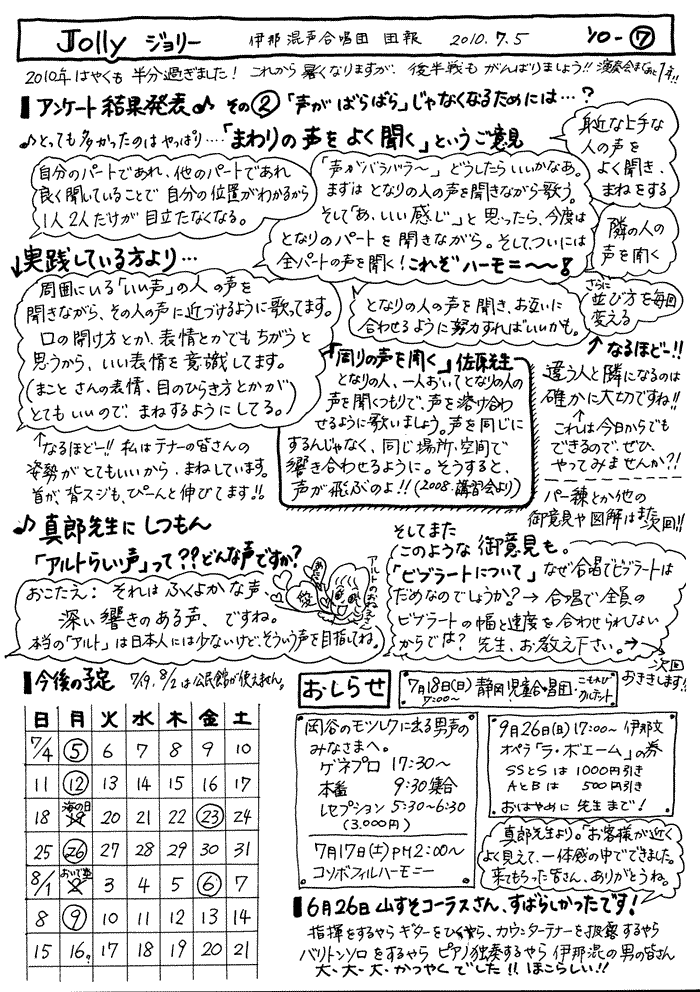 Jolly ジョリー 伊那混声合唱団 団報 2010.7.5 10-⑦
2010年はやくも半分過ぎました！これから暑くなりますが、後半戦もがんばりましょう!! 演奏会まであと1ヶ月!!
アンケート結果発表♪ その② 「声がばらばら」じゃなくなるためには…？
♪とっても多かったのはやっぱり‥‥「まわりの声をよく聞く」というご意見
自分のパートであれ、他のパートであれ
良く聞いていることで自分の位置がわかるから
1人2人だけが目立たなくなる。
「声がバラバラ〜」どうしたらいいかなあ。
まずはとなりの人の声を聞きながら歌う。
そして「あ、いい感じ」と思ったら、今度は
となりのパートを聞きながら。そして、ついには
全パートの声を聞く！これぞハーモニ〜〜！
身近な上手な
人の声を
よく聞き、
まねをする
隣の人の
声を聞く
さらに
並び方を毎回
変える
↓実践している方より…
周囲にいる「いい声」の人の声を
聞きながら、その人の声に近づけるように歌ってます。
口の開け方とか、表情とかでもちがうと
思うから、いい表情を意識してます。
(まことさんの表情、目のひらき方とかが
とてもいいので、まねするようにしてる。)
となりの人の声を聞き、お互いに
合わせるように努力すればいいかも。
↑なるほどー!! 私はテナーの皆さんの
姿勢がとてもいいから、まねしています。
首が、背スジも、ぴーんと伸びてます!!
「周りの声を聞く」佐原先生
となりの人、一人おいてとなりの人の
声を聞くつもりで、声を溶け合わ
せるように歌いましょう。声を同じに
するんじゃなく、同じ場所・空間で
響き合わせるように。そうすると、
声が飛ぶのよ!!(2008.講習会より)
↑なるほどー!!
違う人と隣になるのは
確かに大切ですね!!
↑
これは今日からでも
できるので、ぜひ、
やってみませんか?!
パー練とか他の
御意見や図解はまた
次回!!
♪真郎先生にしつもん
「アルトらしい声」って??どんな声ですか?
おこたえ：それはふくよかな声、
深い響きのある声、ですね。
本当の「アルト」は日本人には少ないけど、そういう声を目指してね。
アルトのおねえさん
そしてまた
このような御意見も。
「ビブラートについて」なぜ合唱でビブラートは
だめなのでしょうか?→合唱で全員の
ビブラートの幅と速度を合わせられない
からでは? 先生、お教え下さい。→
次回
おききします!!
今後の予定 7/19, 8/2は公民館が使えません。
日 月 火 水 木 金 土
7/4 ⑤ 6 7 8 9 10
11 ⑫ 13 14 15 16 17
18 海の日 19 20 21 22 ㉓ 24
25 ㉖ 27 28 29 30 31
8/1 2 3 4 5 ⑥ 7
8 ⑨ 10 11 12 13 14
15 16? 17 18 19 20 21
おしらせ
7月18日(日) 静岡児童合唱団
7:00〜
岡谷のモツレクに出る男声の
みなさまへ。
ゲネプロ 17:30〜
本番 9:30集合
レセプション 5:30〜6:30
(3,000円)
7月17日(土)PM2:00〜
コソボフィルハーモニー
9月26日(日)17:00〜伊那文
オペラ「ラ・ボエーム」の券
SSとSは 1000円引き
AとBは 500円引き
おはやめに 先生まで！
真郎先生より。お客様が近く
よく見えて、一体感の中でできました。
来てもらった皆さん、ありがとうね。
6月26日 山すそコーラスさん、すばらしかったです！
指揮をするやらギターをひくやら、カウンターテナーを披露するやら
バリトンソロをするやらピアノ独奏するやら伊那混の男の皆さん
大・大・大・かつやくでした!! ほこらしい!!